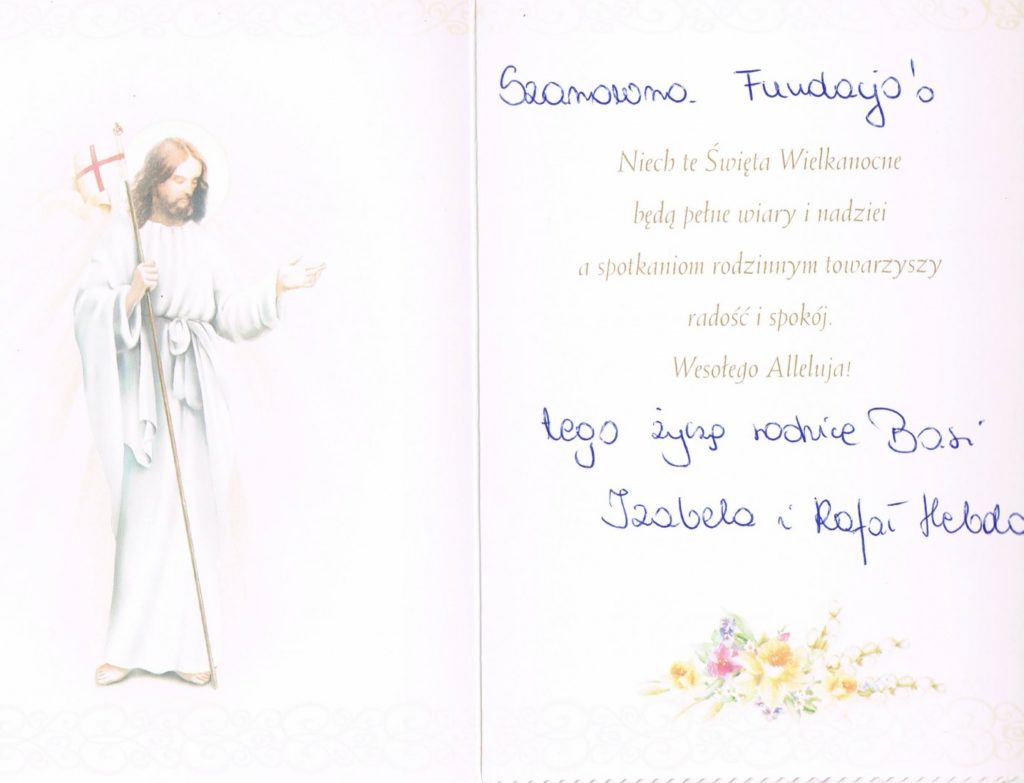 Szanowna Fundacjo!
Niech te Święta Wielkanocne
będą pełne wiary i nadziei
a spotkaniom rodzinnym towarzyszy
radość i spokój.
Wesołego Alleluja!
tego życzą rodzice Basi
Izabela i Rafał Hebda